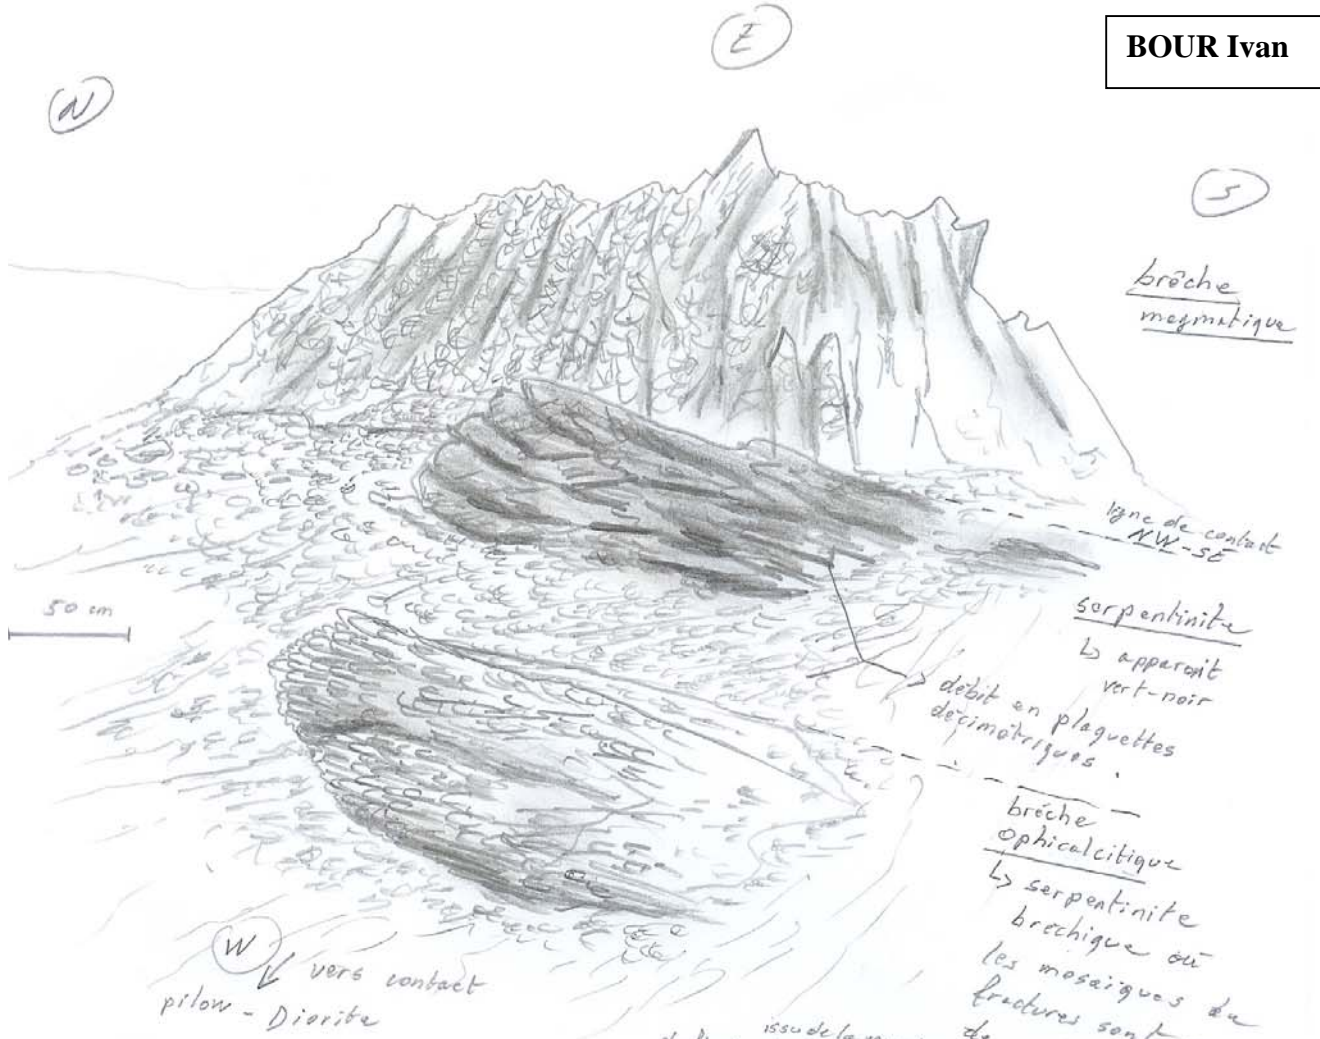 E
BOUR Ivan
N
S
brèche
magmatique
ligne de contact
NW-SE
50 cm
serpentinite
↳ apparait
vert-noir
débit en plaquettes
décimétriques.
brèche
ophicalcitique
↳ serpentinite
brechique où
les mosaïques de
fractures sont
W
vers contact
pilow - Diorite
issu de la
de